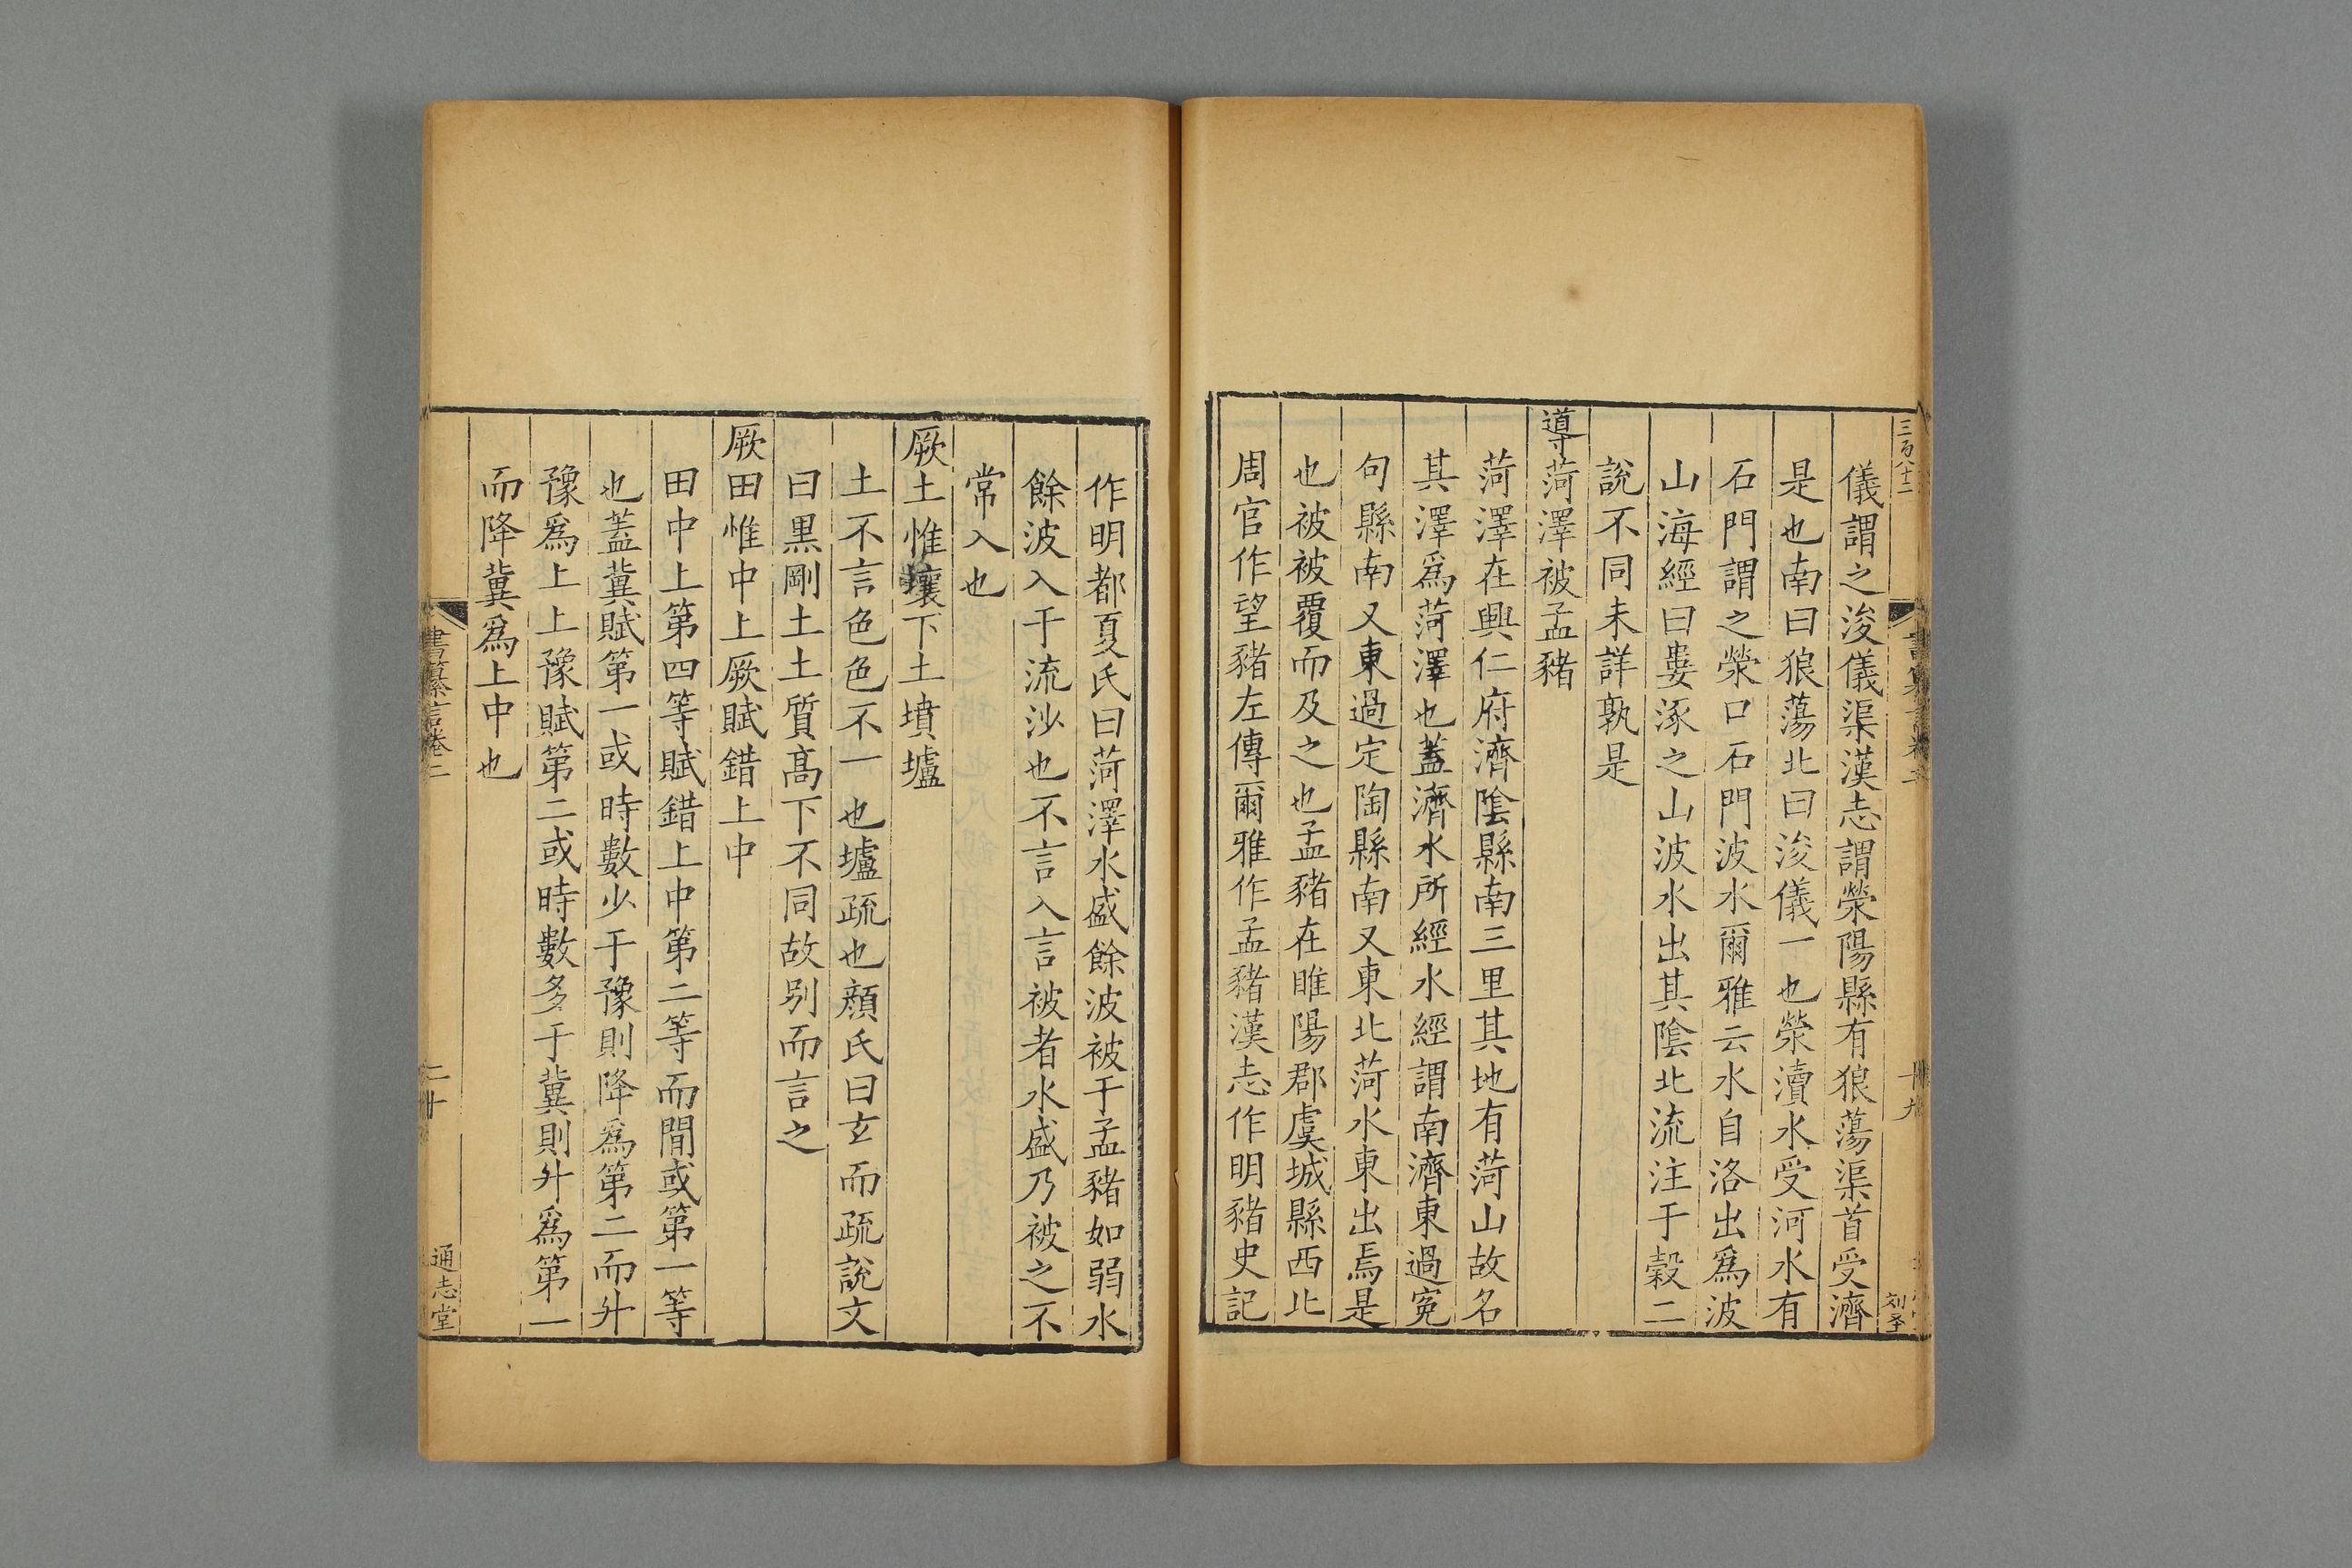 三百八十二
儀謂之浚儀渠漢志謂滎陽縣有狼蕩渠首受濟
是也南曰狼蕩北曰浚儀一也滎瀆水受河水有
石門謂之滎口石門波水爾雅云水自洛出爲波
山海經曰婁涿之山波水出其陰北流注于穀二
說不同未詳孰是
導菏澤被孟豬
菏澤在興仁府濟陰縣南三里其地有菏山故名
其澤爲菏澤也蓋濟水所經水經謂南濟東過冤
句縣南又東過定陶縣南又東北菏水東出焉是
也被被覆而及之也孟豬在睢陽郡虞城縣西北
周官作望豬左傳爾雅作孟豬漢志作明豬史記
作明都夏氏曰菏澤水盛餘波被于孟豬如弱水
餘波入于流沙也不言入言被者水盛乃被之不
常入也
厥土惟壤下土墳壚
土不言色色不一也壚疏也顏氏曰玄而疏說文
曰黑剛土土質高下不同故别而言之
厥田惟中上厥賦錯上中
田中上第四等賦錯上中第二等而間或第一等
也蓋冀賦第一或時數少于豫則降爲第二而升
豫爲上上豫賦第二或時數多于冀則升爲第一
而降冀爲上中也
書纂言卷二
二十
通志堂